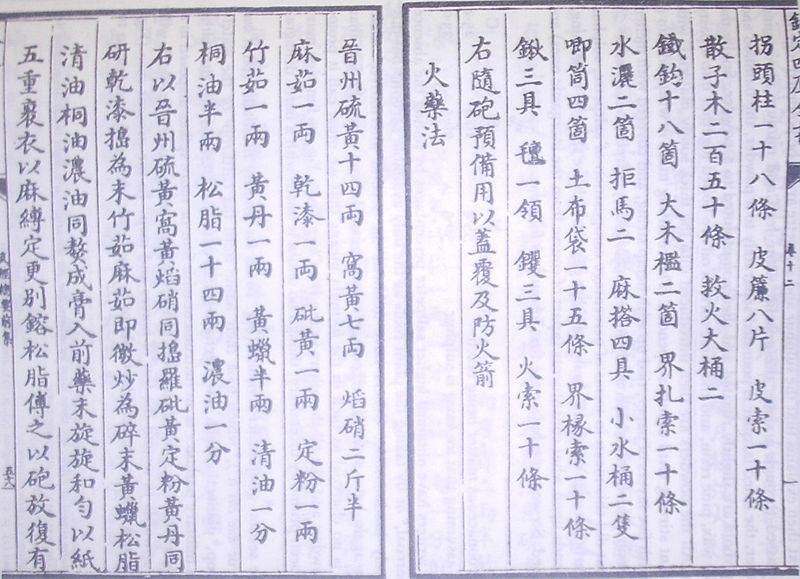 拐頭柱一十八條 皮簾八片 皮索一十條
散子木二百五十條 救火大桶二
鐵鈎十八箇 大木檻二箇 界扎索一十條
水濹二箇 拒馬二 麻搭四具 小水桶二隻
唧筒四箇 土布袋一十五條 界椽索一十條
鍬三具 氊一領 钁三具 火索一十條
右隨砲預備用以蓋覆及防火箭
火藥法
晉州硫黃十四兩 窩黃七兩 焰硝二斤半
麻茹一兩 乾漆一兩 砒黃一兩 定粉一兩
竹茹一兩 黃丹一兩 黃蠟半兩 清油一分
桐油半兩 松脂一十四兩 濃油一分
右以晉州硫黃窩黃焰硝同搗羅砒黃定粉黃丹同
研乾漆搗為末竹茹麻茹即微炒為碎末黃蠟松脂
清油桐油濃油同熬成膏入前藥末旋旋和勻以紙
五重裹衣以麻縛定更別鎔松脂傅之以砲放復有
卷十二
武經總要前集